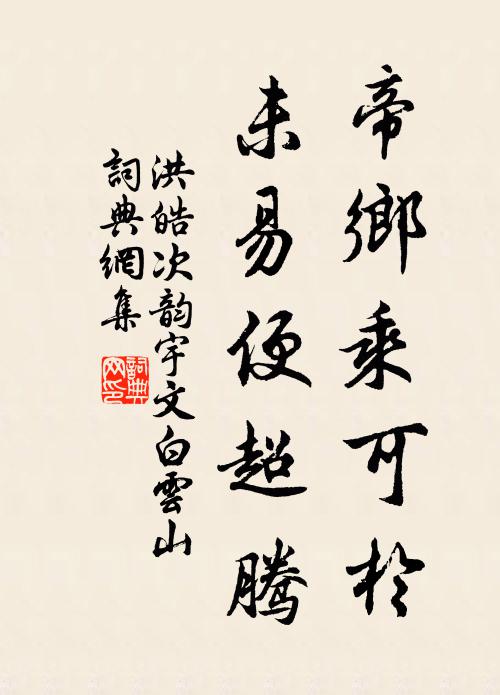 帝鄉乘可於
未易便超騰
洪皓次韵宇文白雲山
詞典網集
詞典网印